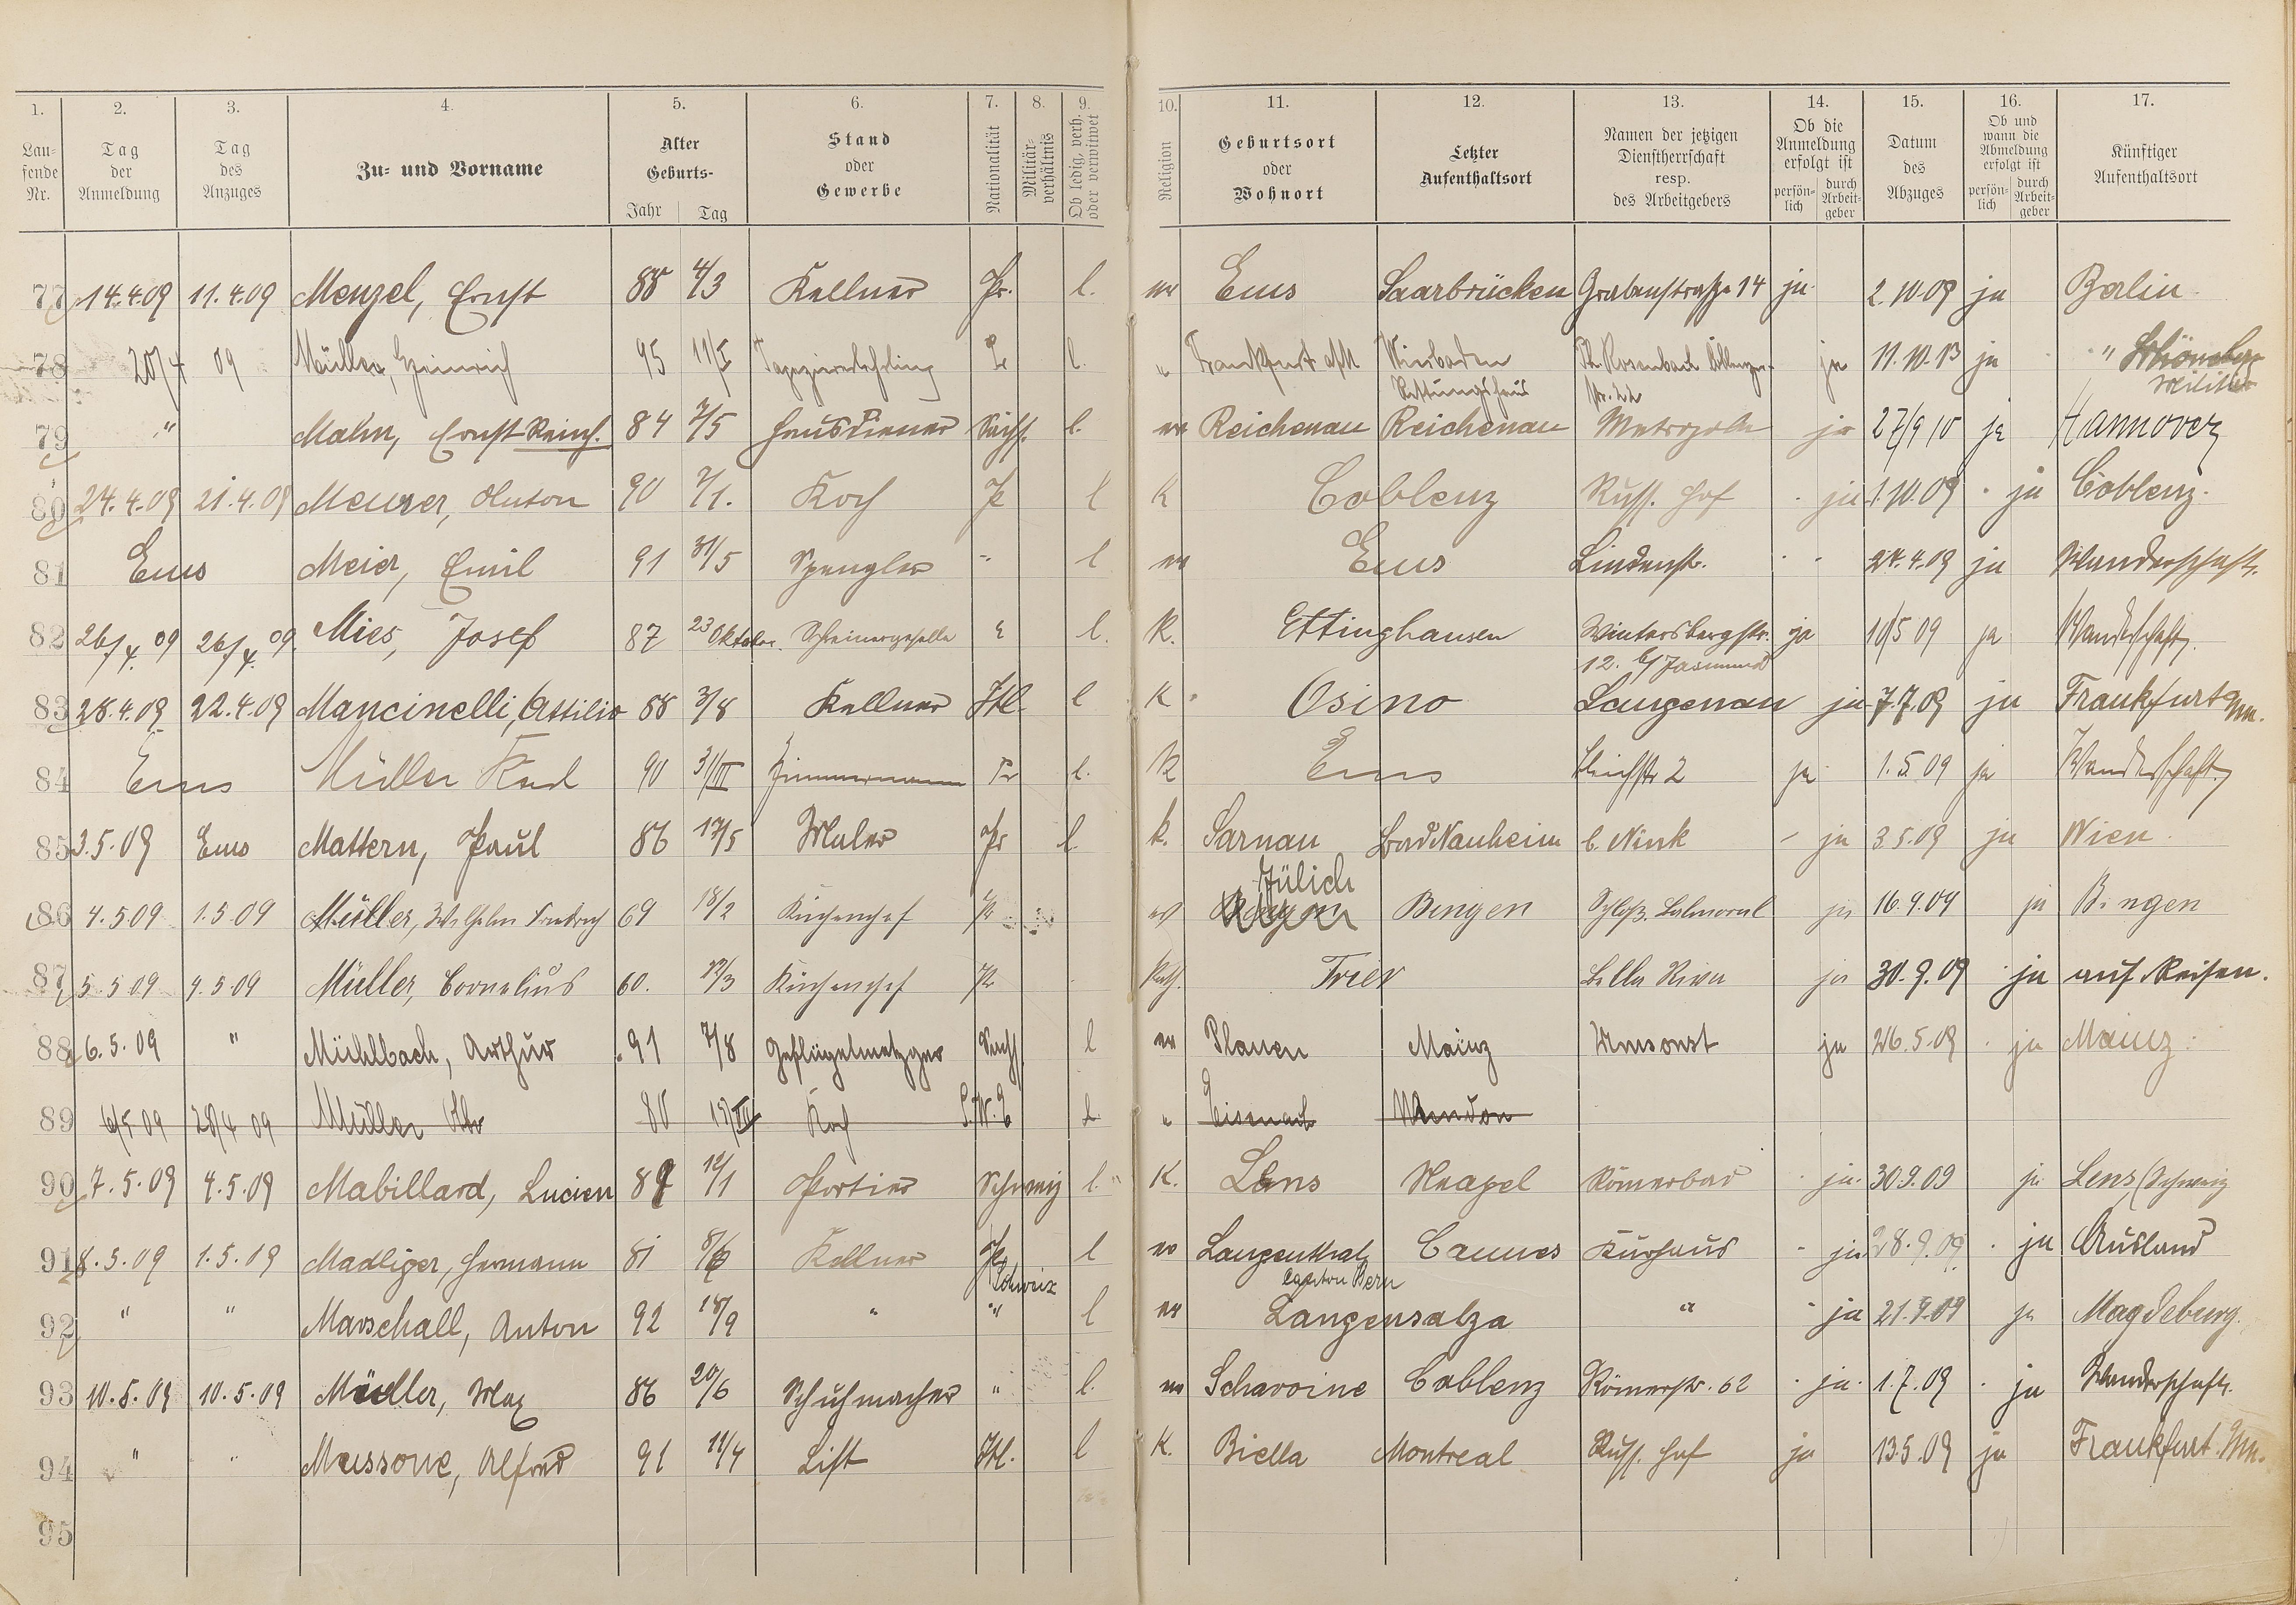 1. 2. 3. 4. 5. 6. 7. 8. 9. 10. 11. 12. 13. 14. 15. 16. 17.
Laufende Nr. Tag der Anmeldung Tag des Anzuges Zu- und Vorname Alter Geburts- Jahr Tag Stand oder Gewerbe Nationalität Militärverhältnis Ob ledig, verh. oder verwitwet Religion Geburtsort oder Wohnort Letzter Aufenthaltsort Namen der jetzigen Dienstherrschaft resp. des Arbeitgebers Ob die Anmeldung erfolgt ist persönlich durch Arbeitgeber Datum des Abzuges Ob und wann die Abmeldung erfolgt ist persönlich durch Arbeitgeber Künftiger Aufenthaltsort
77 14.4.09 11.4.09 Menzel, Ernst 88 4/3 Kellner Pr. l. ev Ems Saarbrücken Grabenstraße 14 ja 2.10.09 ja Berlin
78 20/4 09 Müller, Heinrich 95 11/I Tapeziererlehrling Pr l. " Frankfurt a/M Wiesbaden Rettungshaus Ph. Rosenbach str. 22 ja 11.10.13 ja " Schöneberg Militär
79 " Mahn, Ernst Reinh. 84 7/5 Hausdiener Sächs. l. ev Reichenau Reichenau Metropole ja 27/9 10 ja Hannover
80 24.4.09 21.4.09 Meurer, Anton 90 7/1. Koch P l K Coblenz Russ. Hof ja 1.10.09 ja Coblenz.
81 Ems Meier, Emil 91 31/5 Spengler " l ev Ems Lindenstr. 24.4.09 ja Wanderschaft.
82 26/4. 09 26/4. 09. Mies, Josef 87 23 Oktober. Schreinergeselle " l. K. Ettinghausen Wintersbergstr. 12. b/ Jasmund ja 10/5 09 ja Wanderschaft.
83 28.4.09 22.4.09 Mancinelli, Attilio 88 3/8 Kellner Itl. l K Osino Langenau ja 7.7.09 ja Frankfurt a/m.
84 Ems Müller Karl 90 31/III Zimmermann Pr l. K Ems Bleichstr 2 ja 1.5 09 ja Wanderschaft.
85 3.5.09 Ems Mattern, Paul 86 17/5 Maler Pr l. k. Sarnau Bad Nauheim b. Nink ja 3.5.09 ja Wien
86 4.5 09 1.5 09 Müller, Wilhelm Friedrich 69 18/2 Küchenchef Pr ev Bingen Jülich Bingen Schloß Balmoral ja 16.9.09 ja Bingen
87 5.5 09 4.5 09 Müller, Cornelius 60. 12/3 Küchenchef Pr Kath. Trier Bella Riva ja 30.9.09 ja auf Reisen.
88 6.5.09 " Mühlbach, Arthur 91 7/8 Geflügelmetzger Sächs. l ev Plauen Mainz Umsonst ja 26.5.09 ja Mainz.
89 6/5 09 28/4 09 Müller Otto 80 Koch S.W.E l. " Eisenach
90 7.5.09 4.5.09 Mabillard, Lucien 89 12/1 Portier Schweiz l. K. Lens Neapel Römerbad ja. 30.9.09 ja Lens, (Schweiz
91 8.5.09 1.5.09 Madliger, Hermann 81 8/6 Kellner Pr Schweiz l ev Langenthal Canton Bern Cannes Kurhaus ja 28.9.09 ja Ausland
92 " " Marschall, Anton 92 18/9 " " l ev Langensalza " ja 21.9.09 ja Magdeburg.
93 10.5.09 10.5.09 Müller, Max 86 20/6 Schuhmacher " l. ev Schavoine Coblenz Römerstr. 62 ja. 1.7.09 ja Wanderschaft.
94 " " Mussone, Alfred 91 11/4 Lift Itl. l K. Biella Montreal Russ. Hof ja 13.5.09 ja Frankfurt a/m.
95